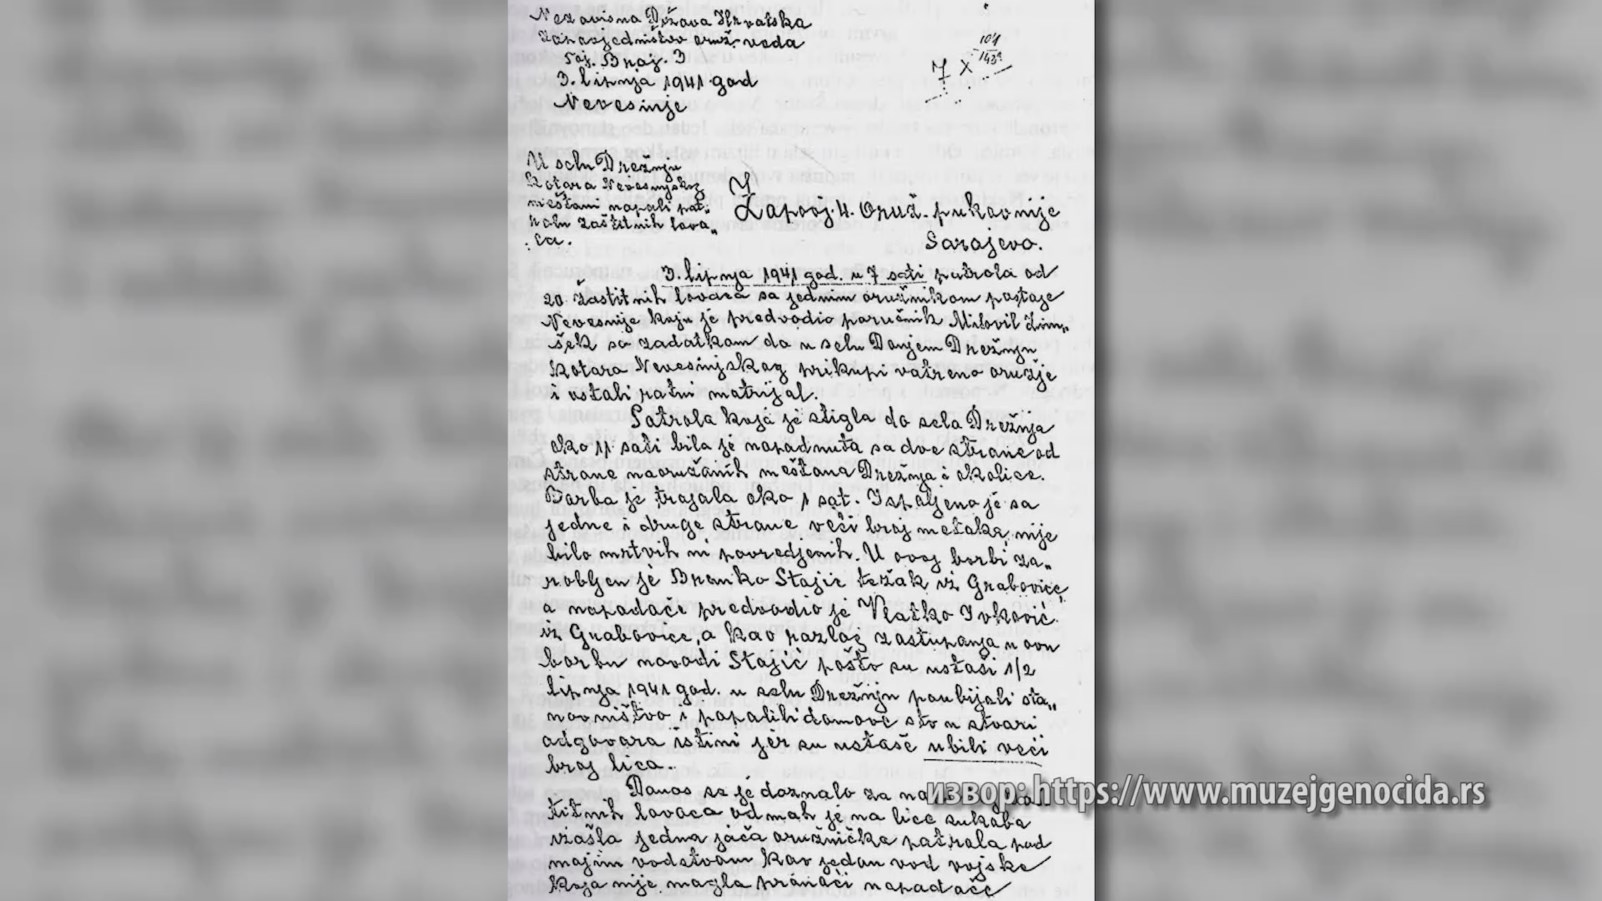 Nezavisna Država Hrvatska
Zapovjedništvo oruž. voda
Taj. Broj. 3
3. lipnja 1941 god
Nevesinje
7 X 104
1439
U selu Drežnju
kotara Nevesinjskog
meštani napali pat„
rolu zaštitnih lova„
ca.
Zapovj. 4. oruž. pukovnije
Sarajevo.
3. lipnja 1941 god. u 7 sati patrola od
20 zastitnih lovaca sa jednim oružnikom postaje
Nevesinje koju je predvodio paručnik Milovil Zim„
šek sa zadatkom da u selu Donjem Drežnju
kotara Nevesinjskog prikupi vatreno oružje
i ostali ratni matrijal.
Patrola koja je stigla do sela Drežnja
oko 11 sati bila je napadnuta sa dve strane od
strane naoružanih meštana Drežnja i okolice.
Borba je trajala oko 1 sat. Ispaljeno je sa
jedne i druge strane veći broj metaka, nije
bilo mrtvih ni povredjenih. U ovoj borbi za„
robljen je Branko Stajić težak iz Grabovice,
a napadače predvodio je Vlatko Ivković
iz Grabovice, a kao razlog zastupanja u ovu
borbu navodi Stajić pošto su ustaši 1/2
lipnja 1941 god. u selu Drežnju poubijali sta„
novništvo i popalili domove što u stvari
odgovara istini jer su ustaše ubili veći
broj lica.
Danas se je doznalo za
titnih lovaca odmah je na lice sukoba
izašla jedna jača oružnička patrola pod
mojim vodstvom kao jedan vod vojske
koja nije mogla pronaći napadače
извор: https://www.muzejgenocida.rs